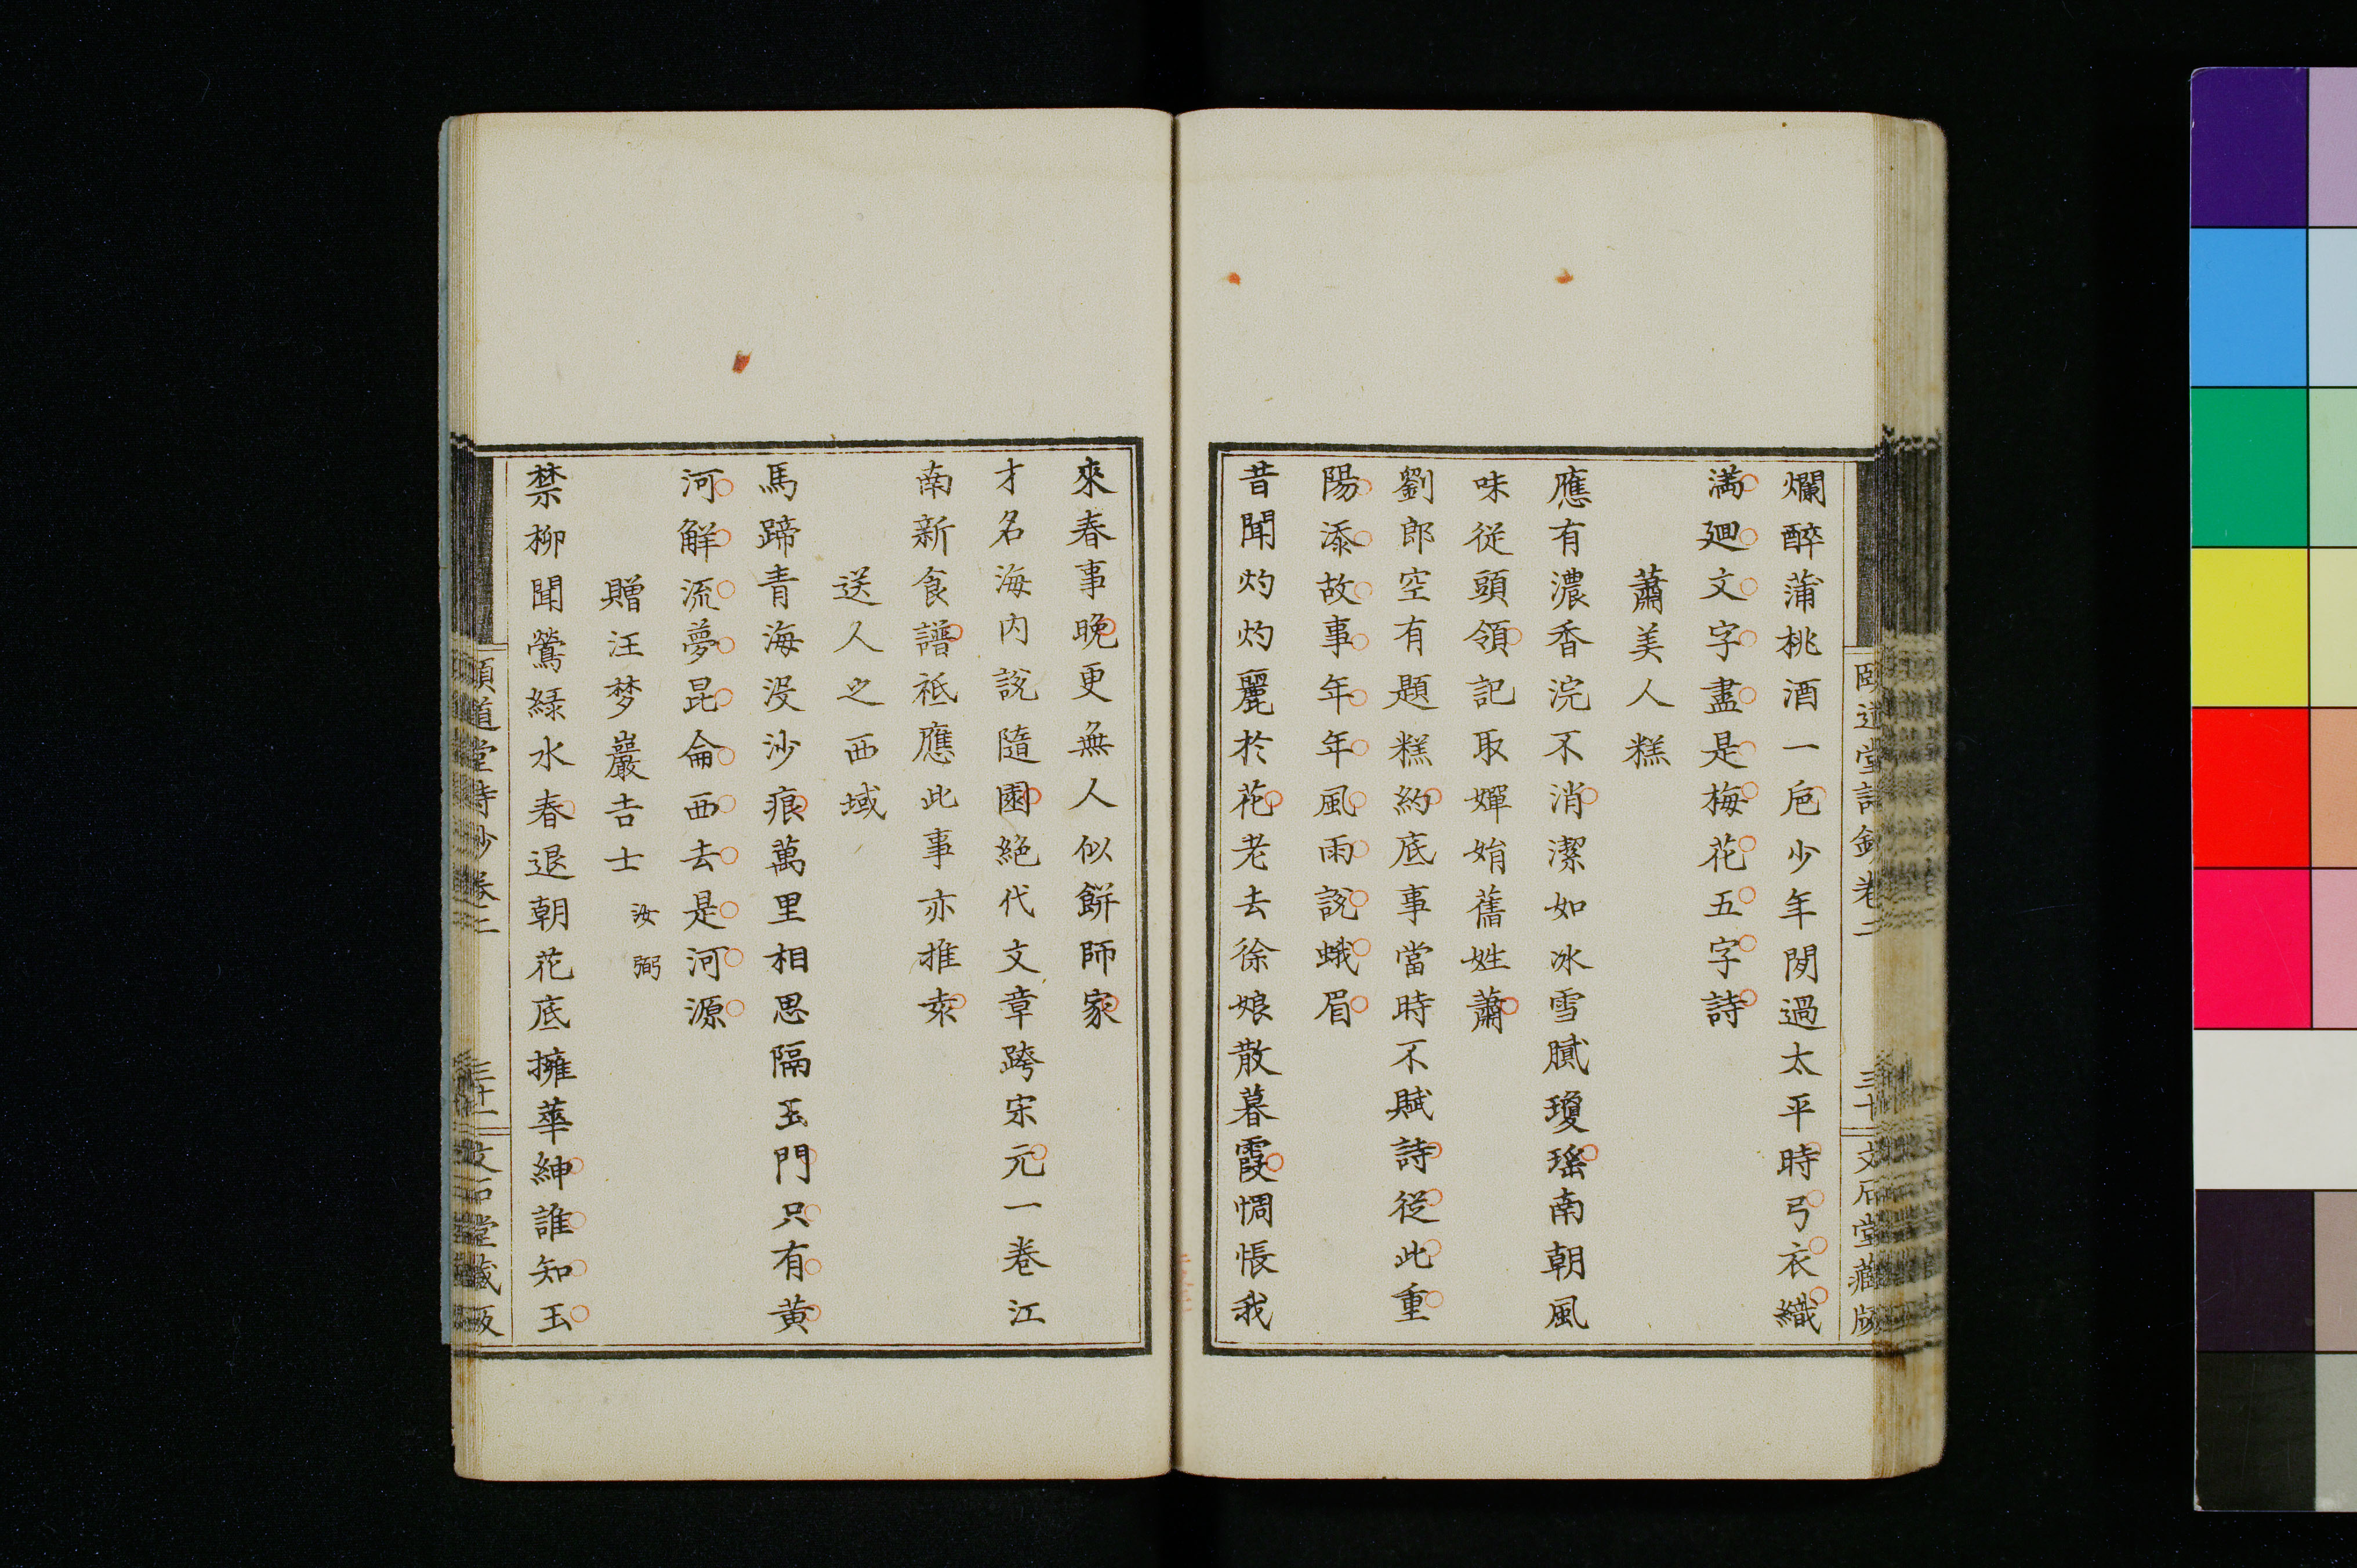 爛醉蒲桃酒一巵少年閒過太平時弓衣織
滿廻文字盡是梅花五字詩
蕭美人糕
應有濃香浣不消潔如冰雪膩瓊瑤南朝風
味從頭領記取嬋娟舊姓蕭
劉郎空有題糕約底事當時不賦詩從此重
陽添故事年年風雨說蛾眉
昔聞灼灼麗於花老去徐娘散暮霞惆悵我
頤道堂詩鈔卷二
三十
文石堂藏版
來春事晚更無人似餅師家
才名海內說隨園絶代文章跨宋元一卷江
南新食譜祗應此事亦推袁
送人之西域
馬蹄青海没沙痕萬里相思隔玉門只有黄
河解流夢昆侖西去是河源
贈汪梦巖吉士 汝弼
禁柳聞鶯緑水春退朝花底擁華紳誰知玉
頤道堂詩鈔卷二
三十一
文石堂藏版